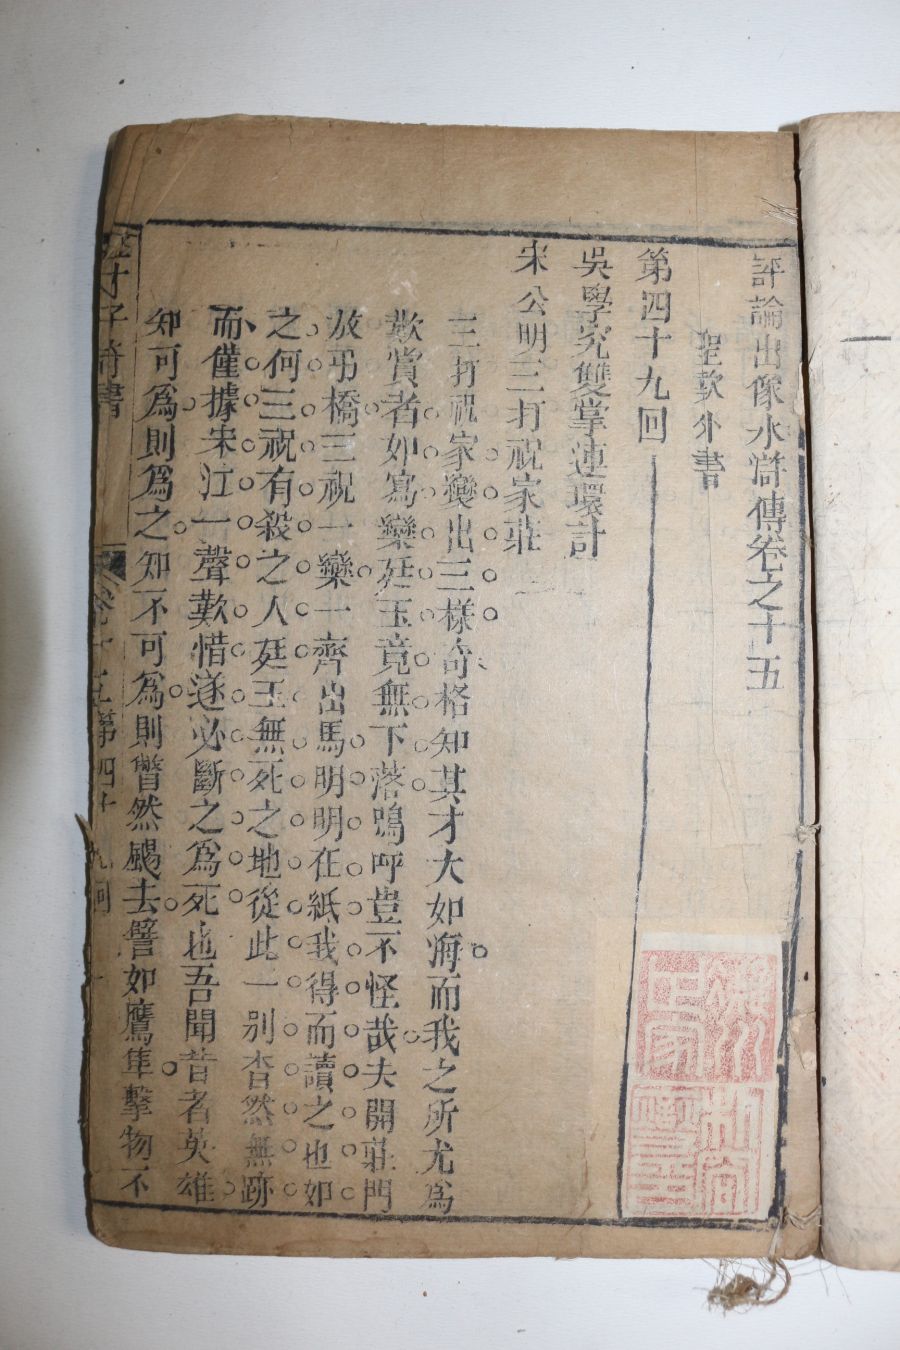 評論出像水滸傳卷之十五
聖歎外書
第四十九回
吳學究雙掌連環計
宋公明三打祝家莊
三打祝家變出三樣奇格知其才大如海而我之所尤爲
歎賞者如寫欒廷玉竟無下落嗚呼豈不怪哉夫開莊門
放弔橋三祝一欒一齊出馬明明在紙我得而讀之也如
之何三祝有殺之人廷玉無死之地從此一別杳然無跡
而僅據宋江一聲歎惜遂必斷之爲死也吾聞昔者英雄
知可爲則爲之知不可爲則瞥然颺去譬如鷹隼擊物不
才子奇書 卷十五第四十九回 一